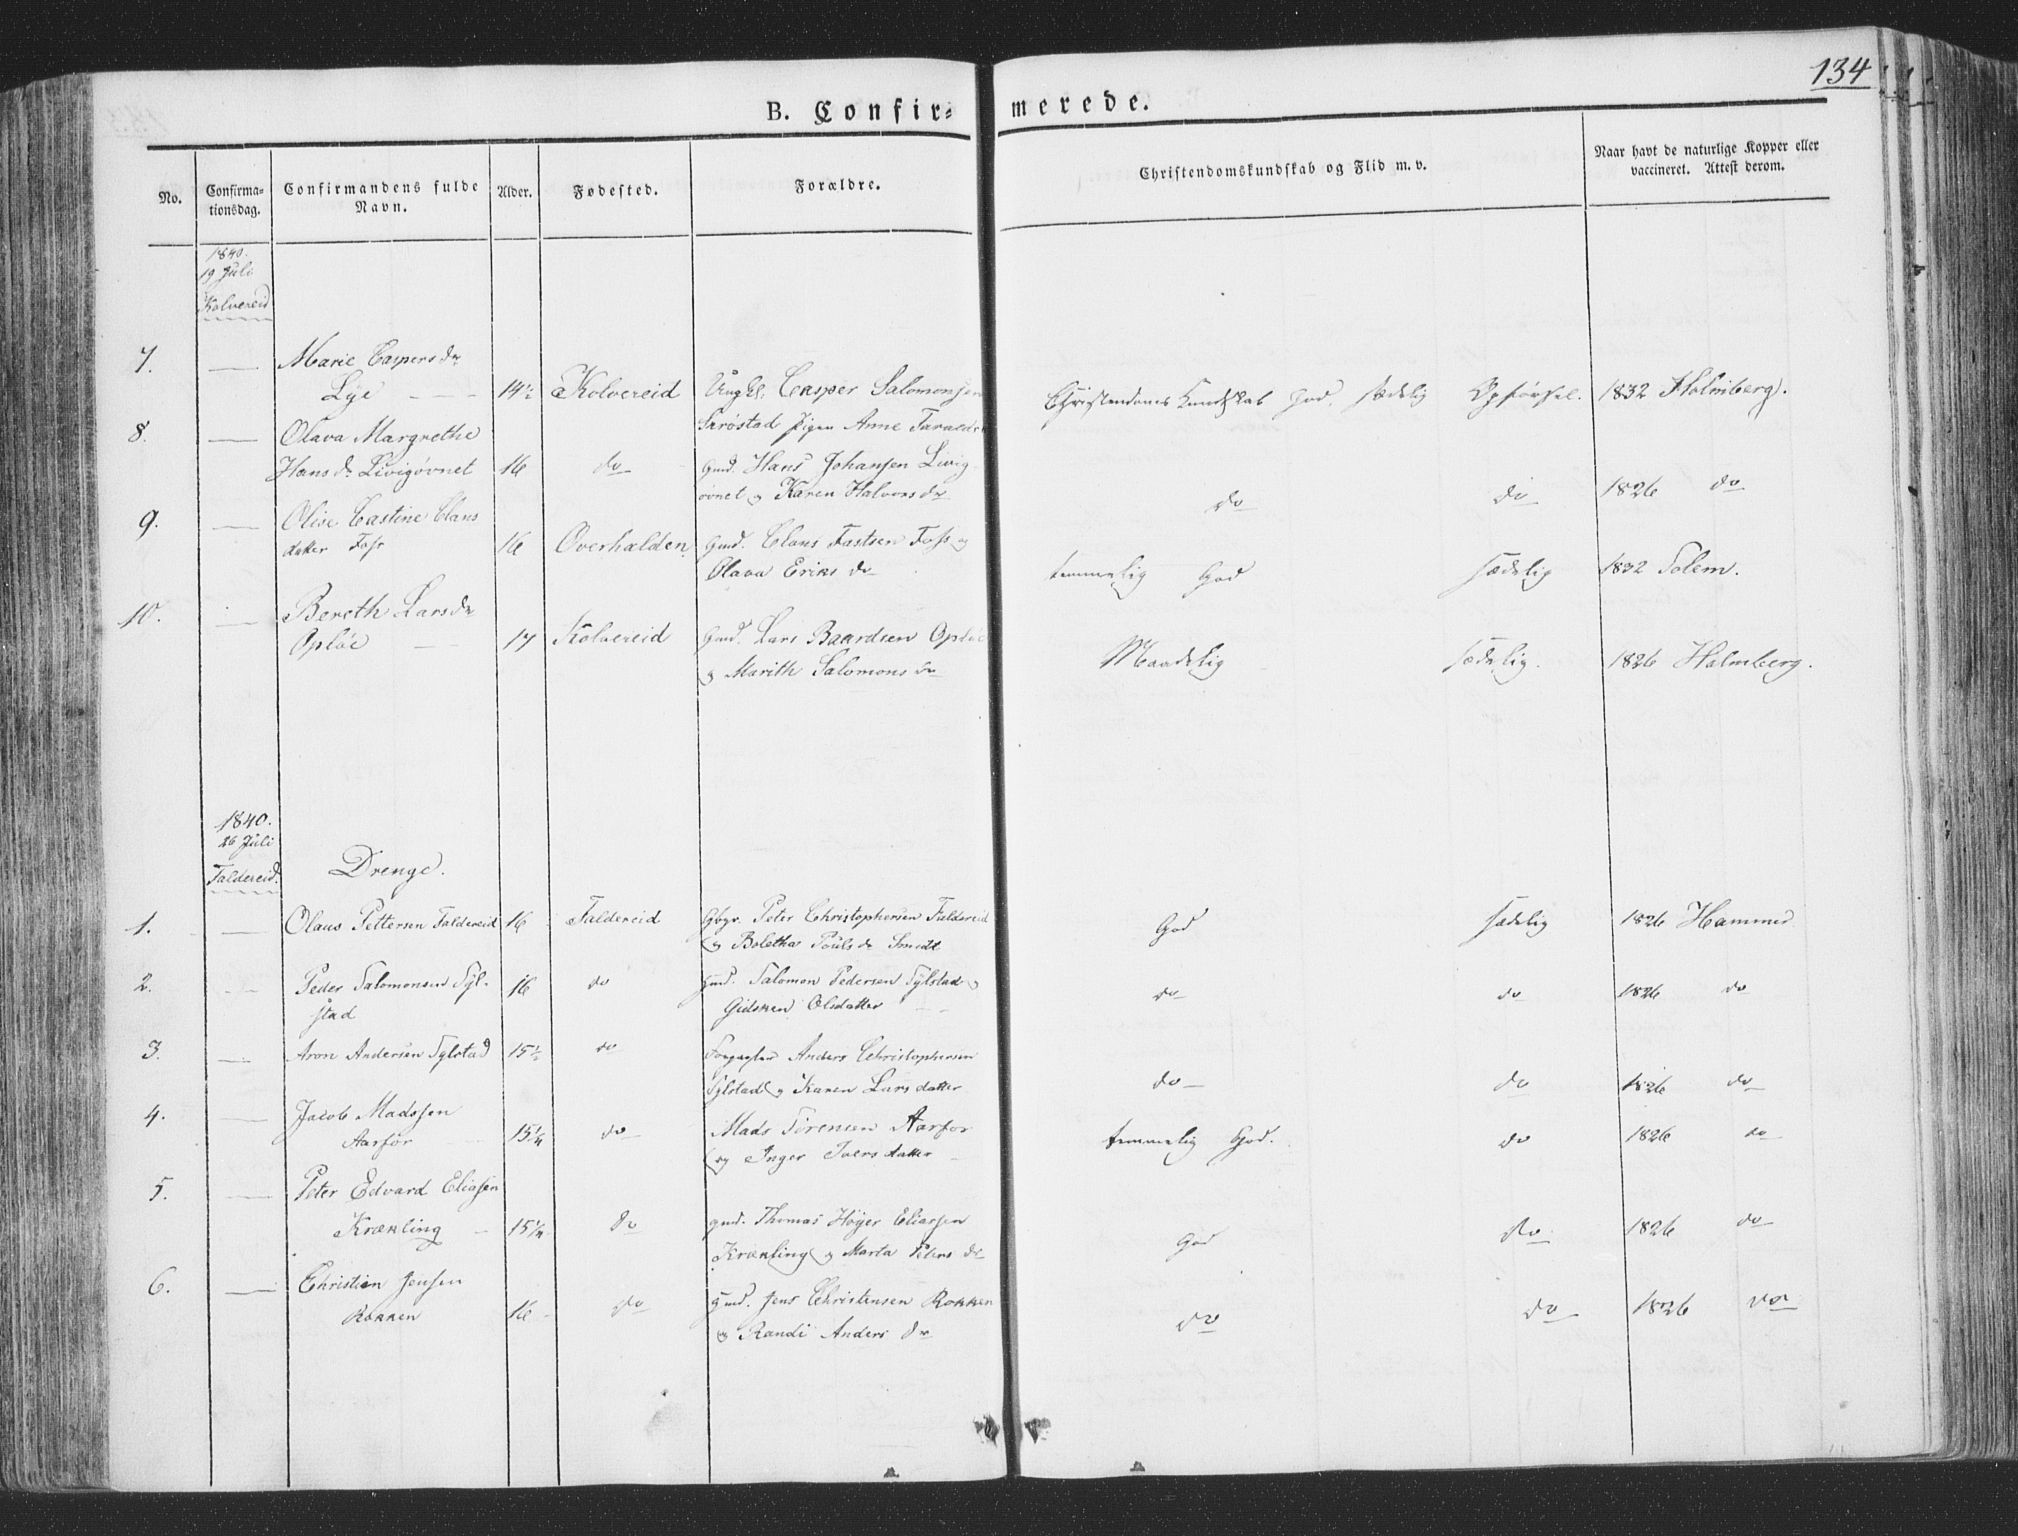 134
B. Confir= merede.
No.
Confirma-
tionsdag.
Confirmandens fulde
Navn.
Alder.
Fødested.
Forældre.
Christendomskundskab og Flid m. v.
Naar havt de naturlige Kopper eller
vaccineret. Attest derom.
1840.
19 Juli
Kolvereid
7. Marie Caspers dr
Lye 14½ Kolvereid Ungkl. Casper Salomonsen Christendoms Kundskab God. sædelig Opførsel. 1832 Holmberg.
8. Olava Margrethe Pigen Anne
Hans dr Livigøvnet 16 do Gmd. Hans Johansen Livig
øvnet og Karen Halvors dr do do 1826 do
9. Olise Castine Clans
datter Foss 16 Overhalden Gmd. Clans Fastsen Foss og
Olava Eriks dr temmelig God sædelig 1832 Solem.
10. Bereth Lars dr
Opløe 17 Kolvereid Gmd. Lars Baardsen Opløe
og Marith Salomons dr Maadelig sædelig. 1826 Holmberg.
1840.
26 Juli
Foldereid.
Drenge.
1. Olaus Pettersen Foldereid 16 Foldereid Peter Christophersen Foldereid
og Boletha Pouls dr Smedt God sædelig 1826 Hammer
2. Peder Salomonsen Syl- 16 do gmd. Salomon Pedersen Sylstad og
stad Gidsken Olsdatter do do 1826 do
3. Aron Andersen Sylstad 15½ do Anders Christophersen
Sylstad og Karen Lars datter do do 1826 do
4. Jacob Madssen
Aarfor 15¼ do Mads Sørensen Aarfor
og Inger Ivers datter temmelig God. do 1826 do
5. Peter Edvard Eliasen
Krækling 15¼ do gmd. Thomas Høyer Eliassen
Krækling og Marta Peters dr God do 1826 do
6. Christian Jensen
Rokken 16 do gmd. Jens Christensen Rokken
og Randi Anders dr do do 1826 do